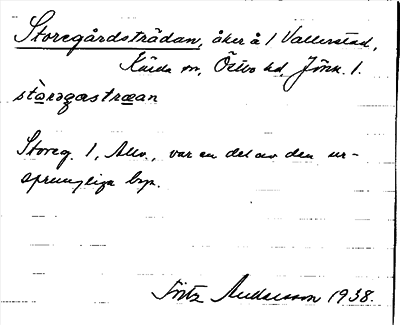 Storegårdsträdan, åker å 1 Vallerstad,
Kärda sn, Östbo hd, Jönk. l.
stòrəgæstræan
Storeg. 1, Allv., var en del av den ur-
sprungliga byn.
Fritz Andersson 1938.